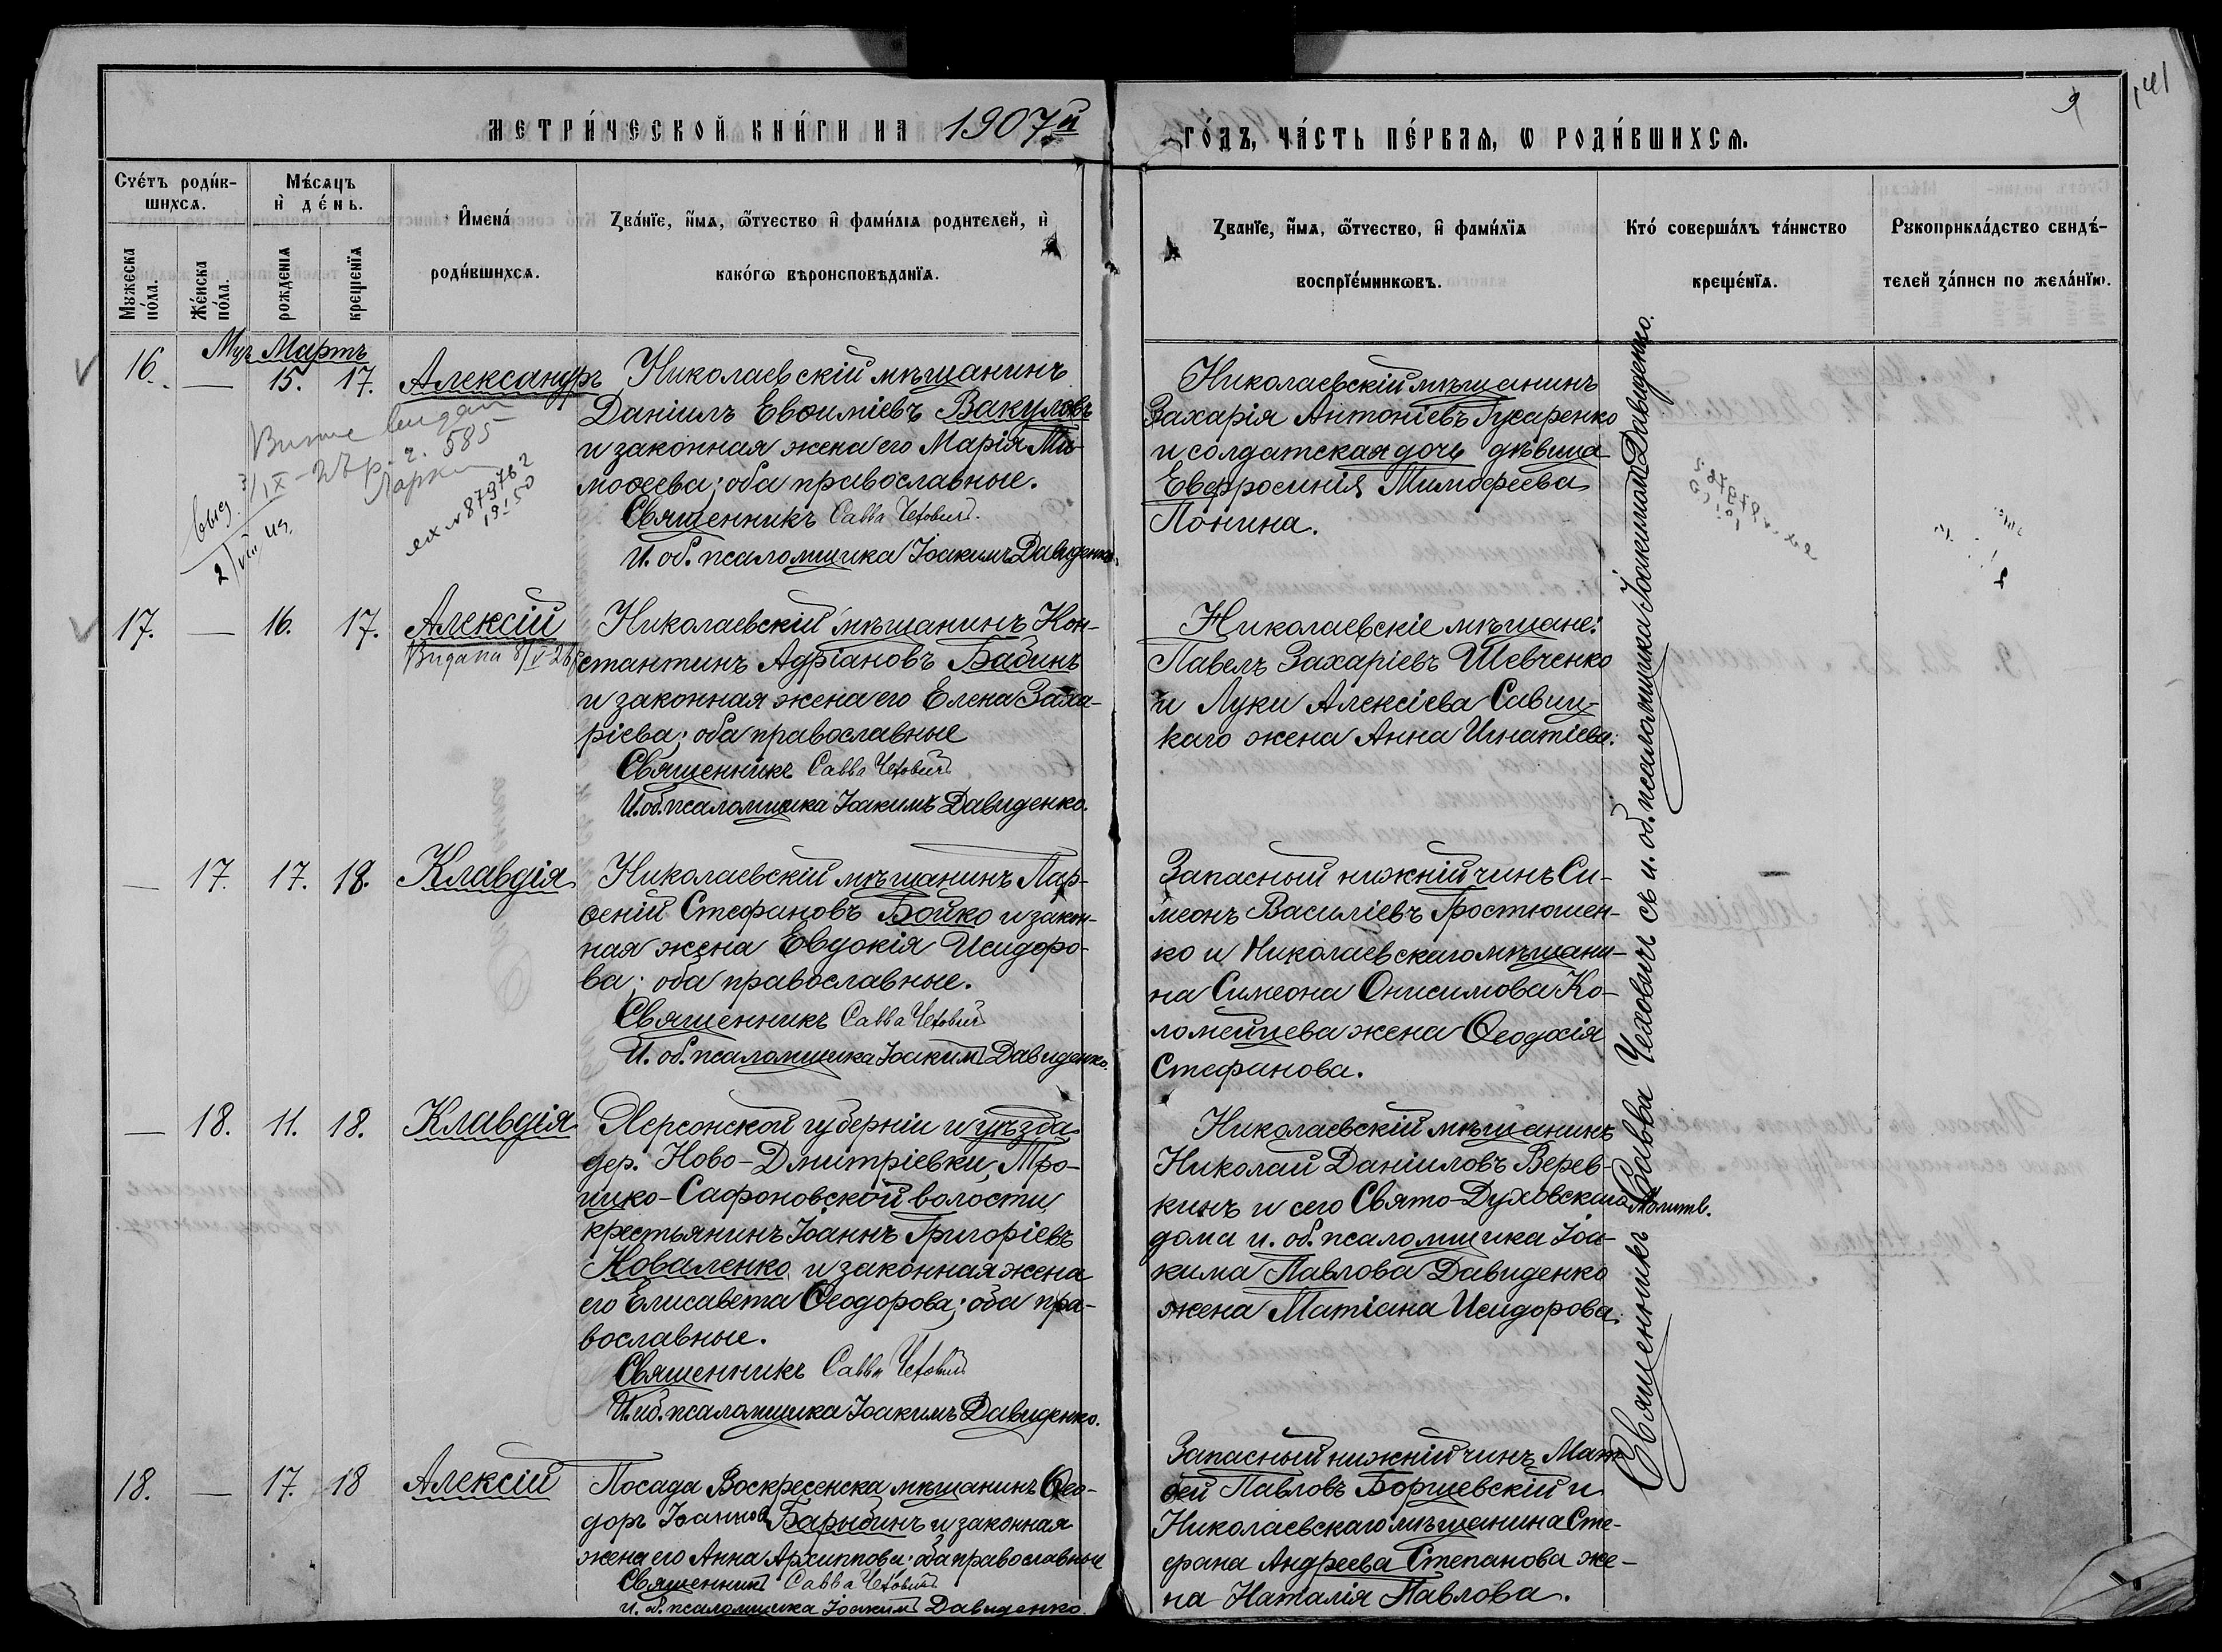 МЕТРИ́ЧЕСКОЙ КНИ́ГИ НА 1907й
ГО́ДЪ, ЧА́СТЬ ПЕ́РВАѦ, Ѡ РОДИ́ВШИХСѦ.
9
141
Сче́тъ роди́в-
шихсѧ.
Мѣ́сѧцъ
и҆ де́нь.
И҆мена́
роди́вшихсѧ.
Зва́нїе, и҆́мѧ, ѻ҆́тчество и҆ фами́лїѧ родителей, и҆
како́гѡ вѣроисповѣданїѧ.
Званїе, и҆́мѧ, ѻ҆́тчество, и҆ фами́лїѧ
воспрїе́мникѡвъ.
Кто́ соверша́лъ та́инство
креще́нїѧ.
Рꙋкоприкла́дство свидѣ́-
телей за́писи по жела́нїю.
Мꙋжеска
по́ла.
Же́нска
по́ла.
рожденїѧ
крещенїѧ
Мцъ Мартъ
16. — 15. 17. Александръ
Николаевскій мѣщанинъ
Даніилъ Евѳиміевъ Вакуловъ
и законная жена его Марія Ти-
моѳеева; оба православные.
Священникъ Савва Чехович
И. об. псаломщика Іоакимъ Давиденко.
Николаевскій мѣщанинъ
Захарія Антоніевъ Гусаренко
и солдатская дочь дѣвица
Евфросинія Тимофеева
Понина.
585
879762
1950
17. — 16. 17. Алексій
Видана 8/V-26
Николаевскій мѣщанинъ Кон-
стантинъ Адріановъ Бабинъ
и законная жена его Елена Заха-
ріева; оба православные
Священникъ Савва Чехович
И. об. псаломщика Іоакимъ Давиденко.
Николаевскіе мѣщане:
Павелъ Захаріевъ Шевченко
и Луки Алексіева Савиц-
каго жена Анна Игнатіева.
— 17. 17. 18. Клавдія
Николаевскій мѣщанинъ Пар-
ѳеній Стефановъ Бойко и закон-
ная жена Евдокія Исидоро-
ва; оба православные.
Священникъ Савва Чехович
И. об. псаломщика Іоакимъ Давиденко.
Запасный нижній чинъ Си-
меонъ Василіевъ Гростюшен-
ко и Николаевскаго мѣщани-
на Симеона Онисимова Ко-
ломейцева жена Ѳеодосія
Стефанова.
— 18. 11. 18. Клавдія
Херсонской губерніи и уѣзда
дер. Ново-Дмитріевки, Тро-
ицко-Сафоновской волости,
крестьянинъ Іоаннъ Григоріевъ
Коваленко и законная жена
его Елисавета Ѳеодорова; оба пра-
вославные.
Священникъ Савва Чехович
И. об. псаломщика Іоакимъ Давиденко.
Николаевскій мѣщанинъ
Николай Даніиловъ Верев-
кинъ и сего Свято-Духовскаго Молитв.
дома и. об. псаломщика Іоа-
кима Павлова Давиденко
жена Татіана Исидорова.
18. — 17. 18 Алексій
Посада Воскресенска мѣщанинъ Ѳео-
доръ Іоаннов Барыбинъ и законная
жена его Анна Архиппова; оба православные
Священникъ Савва Чехович
И. об. псаломщика Іоакимъ Давиденко.
Запасный нижній чинъ Мат-
ѳей Павловъ Борщевскій и
Николаевскаго мѣщанина Сте-
фана Андреева Степанова же-
на Наталія Павлова.
Священникъ Савва Чеховичъ съ и. об. псаломщика Іоакимомъ Давиденко.